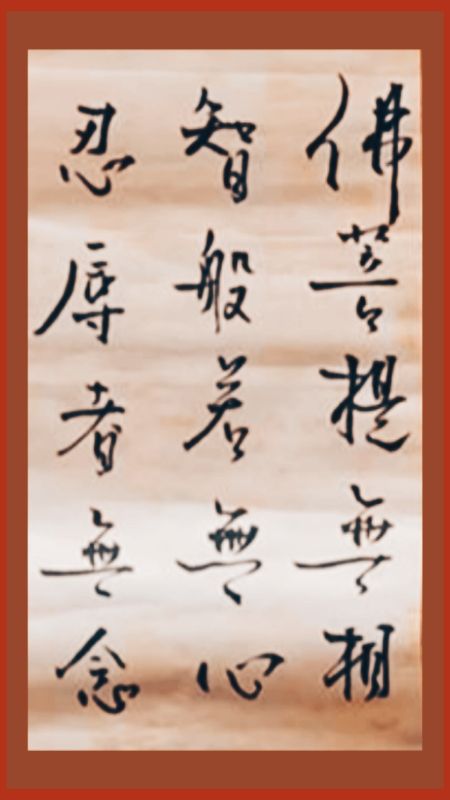 佛菩提無相
智般若無心
忍辱者無念